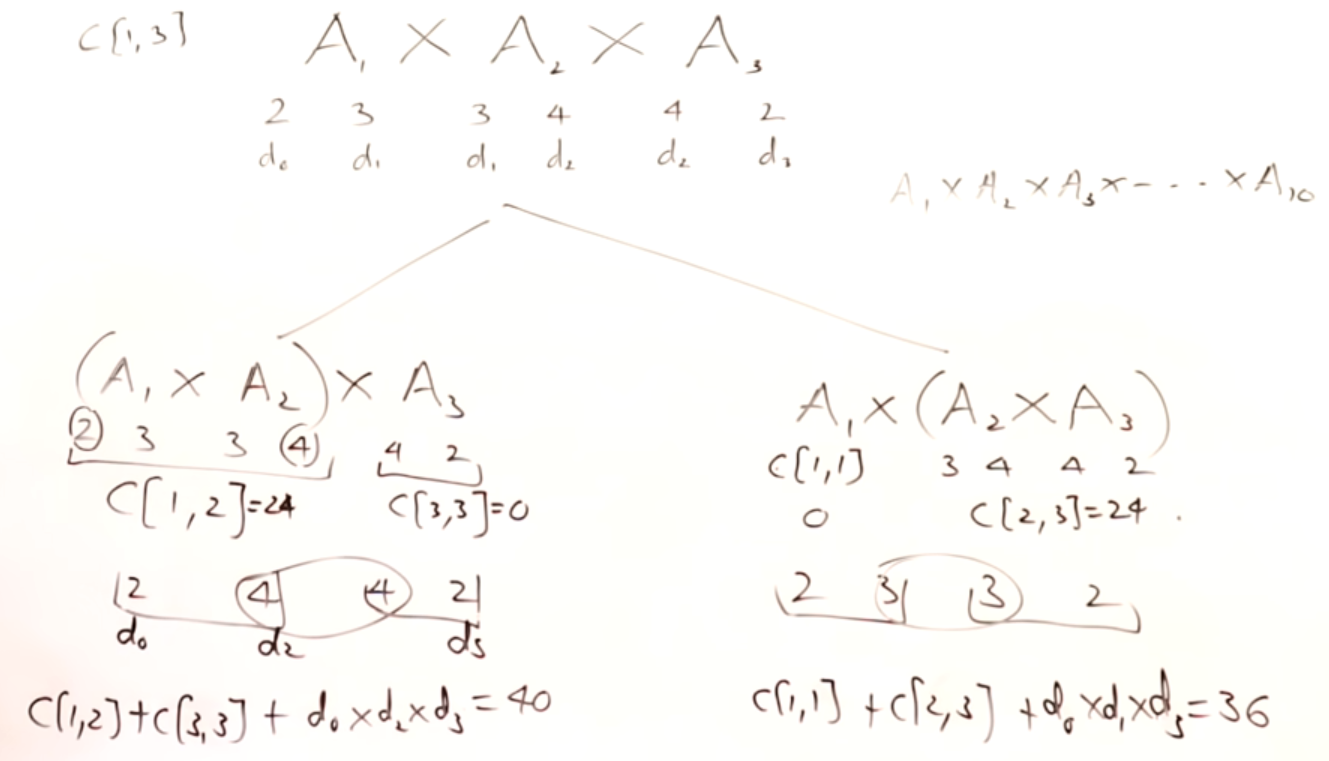 C[1,3] A₁ × A₂ × A₃
2 3 3 4 4 2
d₀ d₁ d₁ d₂ d₂ d₃
A₁ × A₂ × A₃ × - . . . × A₁₀
(A₁ × A₂) × A₃
2 3 3 4 4 2
C[1,2]=24 C[3,3]=0
2 4 4 2
d₀ d₂ d₃
C[1,2]+C[3,3] + d₀×d₂×d₃ = 40
A₁×(A₂×A₃)
C[1,1] 3 4 4 2
0 C[2,3]=24
2 3 3 2
C[1,1] + C[2,3] + d₀×d₁×d₃ = 36